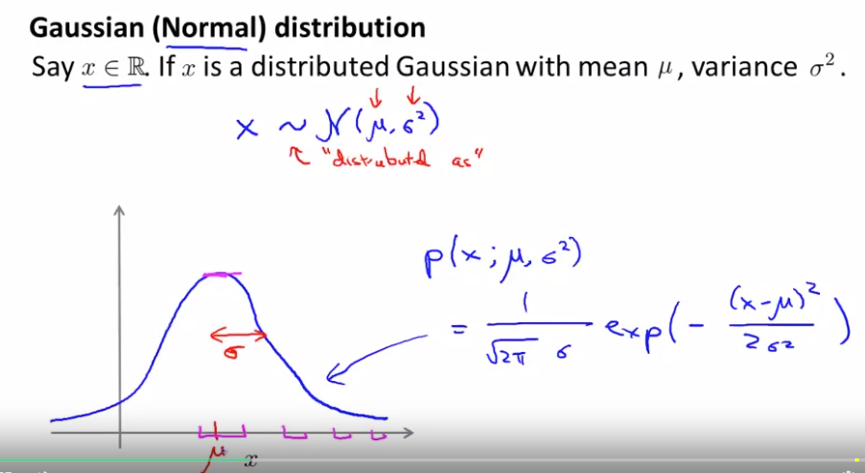 Gaussian (Normal) distribution
Say x ∈ ℝ. If x is a distributed Gaussian with mean μ, variance σ².
x ~ N(μ, σ²)
"distributed as"
p(x; μ, σ²)
= 1/(√2π σ) exp(- (x-μ)²/2σ²)
σ
μ x